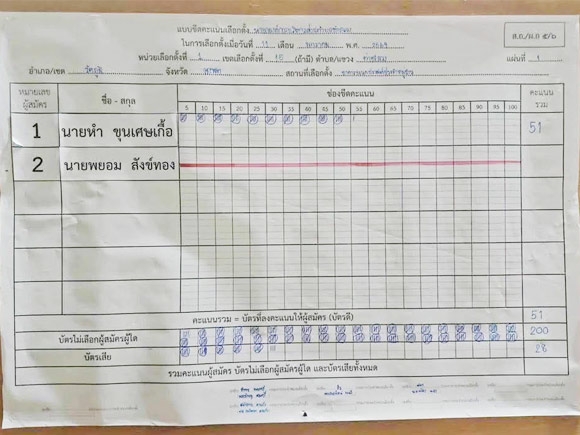 แบบขีดคะแนนเลือกตั้ง
ส.ถ./ผ.ถ. ๕/๖
ในการเลือกตั้งเมื่อวันที่ 11 เดือน มกราคม พ.ศ. 2569
หน่วยเลือกตั้งที่ 1 เขตเลือกตั้งที่ (ถ้ามี) ตำบล/แขวง แผ่นที่ 1
อำเภอ/เขต จังหวัด สถานที่เลือกตั้ง
หมายเลขผู้สมัคร ชื่อ - สกุล ช่องขีดคะแนน คะแนนรวม
5 10 15 20 25 30 35 40 45 50 55 60 65 70 75 80 85 90 95 100
1 นายหำ ขุนเศษเกื้อ 51
2 นายพยอม สังข์ทอง
คะแนนรวม = บัตรที่ลงคะแนนให้ผู้สมัคร (บัตรดี) 51
บัตรไม่เลือกผู้สมัครผู้ใด 200
บัตรเสีย 28
รวมคะแนนผู้สมัคร บัตรไม่เลือกผู้สมัครผู้ใด และบัตรเสียทั้งหมด